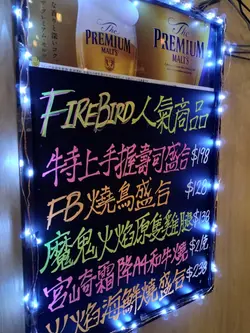 The
PREMIUM
MALT'S
The
PREMIUM
MALT'S
FIREBIRD人氣商品
特上手握壽司盛台 $198
FB燒鳥盛台 $128
魔鬼火焰原隻雞腿 $139
宮崎霜降A4和牛燒
火焰海鮮燒盛台 $238